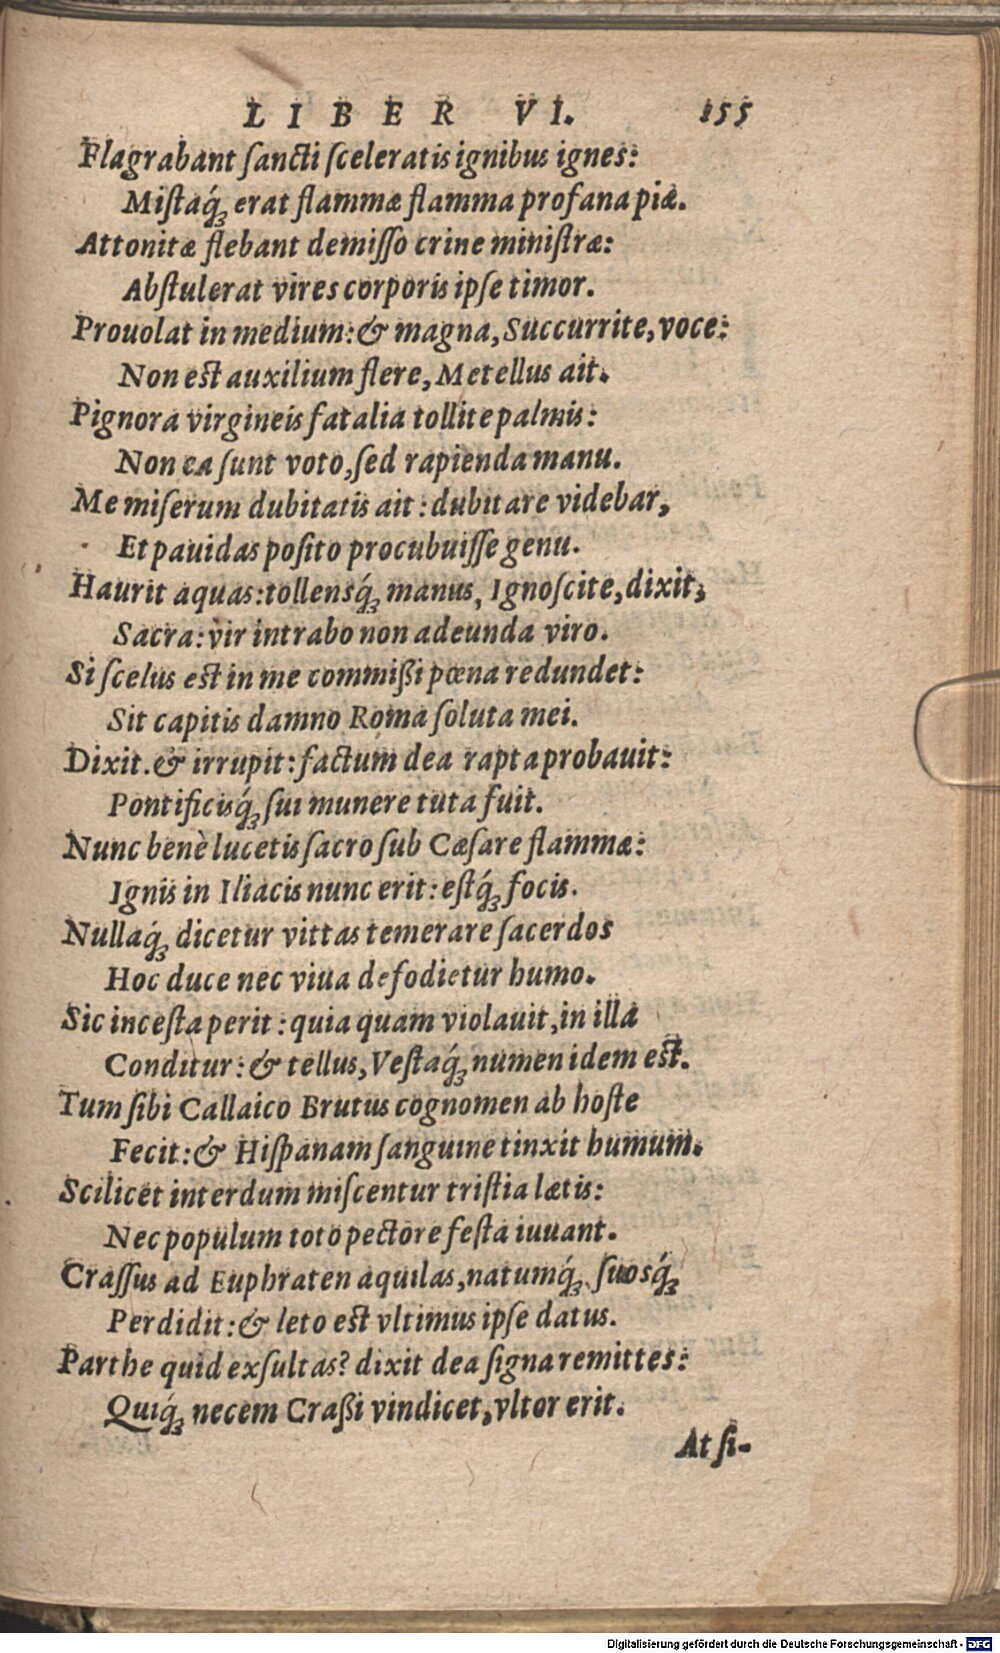 LIBER VI. 155
Flagrabant ſancti ſceleratis ignibus ignes:
Miſtaq́ꝫ erat flammæ flamma profana piæ.
Attonitæ flebant demiſſo crine miniſtræ:
Abſtulerat vires corporis ipſe timor.
Prouolat in medium: & magna, Succurrite, voce:
Non est auxilium flere, Metellus ait.
Pignora virgineis fatalia tollite palmis:
Non ea ſunt voto, ſed rapienda manu.
Me miſerum dubitatis ait: dubitare videbar,
Et pauidas poſito procubuiſſe genu.
Haurit aquas: tollensq́ꝫ manus, Ignoſcite, dixit,
Sacra: vir intrabo non adeunda viro.
Si ſcelus est in me commißi pœna redundet:
Sit capitis damno Roma ſoluta mei.
Dixit. & irrupit: factum dea rapta probauit:
Pontificisq́ꝫ ſui munere tuta fuit.
Nunc benè lucetis ſacro ſub Cæſare flammæ:
Ignis in Iliacis nunc erit: eſtq́ꝫ focis.
Nullaq́ꝫ dicetur vittas temerare ſacerdos
Hoc duce nec viua defodietur humo.
Sic inceſta perit: quia quam violauit, in illa
Conditur: & tellus, Veſtaq́ꝫ numen idem est.
Tum ſibi Callaico Brutus cognomen ab hoſte
Fecit: & Hiſpanam ſanguine tinxit humum.
Scilicet interdum miſcentur triſtia lætis:
Nec populum toto pectore feſta iuuant.
Craſſus ad Euphraten aquilas, natumq́ꝫ ſuosq́ꝫ
Perdidit: & leto est vltimus ipſe datus.
Parthe quid exſultas? dixit dea ſigna remittes:
Quiq́ꝫ necem Craßi vindicet, vltor erit.
At ſi-
Digitalisierung gefördert durch die Deutsche Forschungsgemeinschaft - DFG